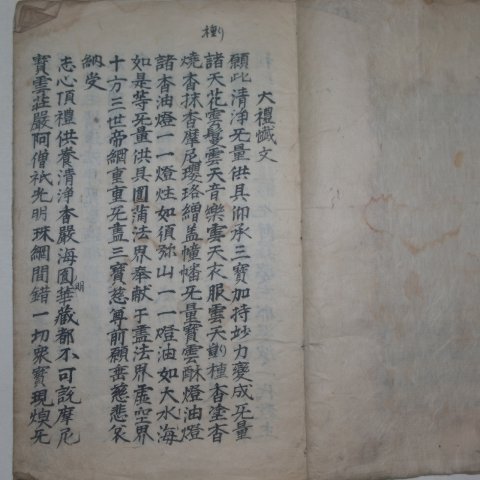 種
大禮懺文
願此清淨无量供具仰承三寶加持妙力變成无量
諸天花雲鬘雲天音樂雲天衣服雲天種種香塗香
燒香抹香摩尼瓔珞繒盖幢幡无量寶雲酥燈油燈
諸香油燈一一燈炷如須弥山一一燈油如大水海
如是等无量供具圓蒲法界奉献于盡法界虛空界
十方三世帝網重重无盡三寶慈尊前願垂慈悲哀
納受
志心頂禮供養清淨香嚴海圓明華藏都不可說摩尼
寶雲莊嚴阿僧祇光明珠網間錯一切衆寶現煥无